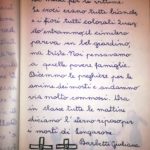 per le vittime.
Le croci erano tutte bianche
e i fiori tutti colorati. Quan
do entrammo il cimitero
pareva un bel giardino,
ma triste. Noi pensavamo
a quelle povere famiglie.
Dicemmo le preghiere per le
anime dei morti e andammo
via molto commossi. Ora
in classe tutte le mattine
diciamo l'eterno riposo per
i morti di Longarone.
Barletta Giuliana